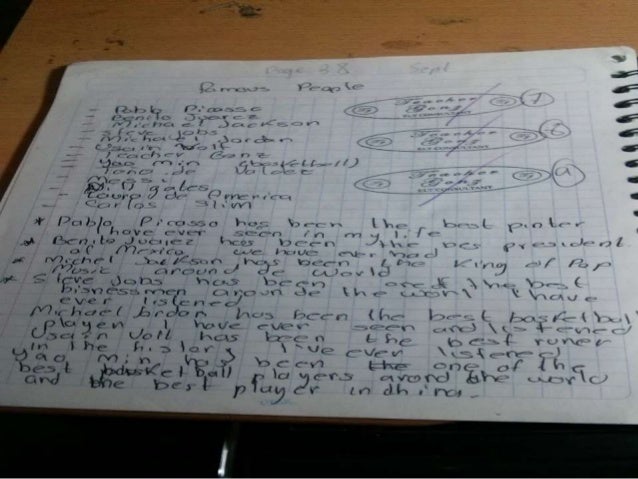 Page 38 Sept
Famous People
Pablo Picasso
Benito Juarez
Michael Jackson
Steve Jobs
Michael Jordan
Usain Volt
Teacher Ganz
Yao Min (basketball)
de Valdez
Messi
Bill gates
Laura de America
Carlos Slim
Teacher
Ganz
ELT CONSULTANT
Teacher
Ganz
ELT CONSULTANT
Teacher
Ganz
ELT CONSULTANT
* Pablo Picasso has been the best pinter
I have ever seen in my life
* Benito Juarez has been the bes president
of Mexico we have ever had
* Michel Jackson has been the King of Pop
Music around de world
* Steve Jobs has been one of the best
bisnessmen around de the worl I have
ever listened
Michael Jordan has been the best basketball
player I have ever seen and listened
Usain Volt has been the best runer
in the history I've ever listened
Yao Min has been the one of the
best basketball players arond the world
and the best player in dhina.